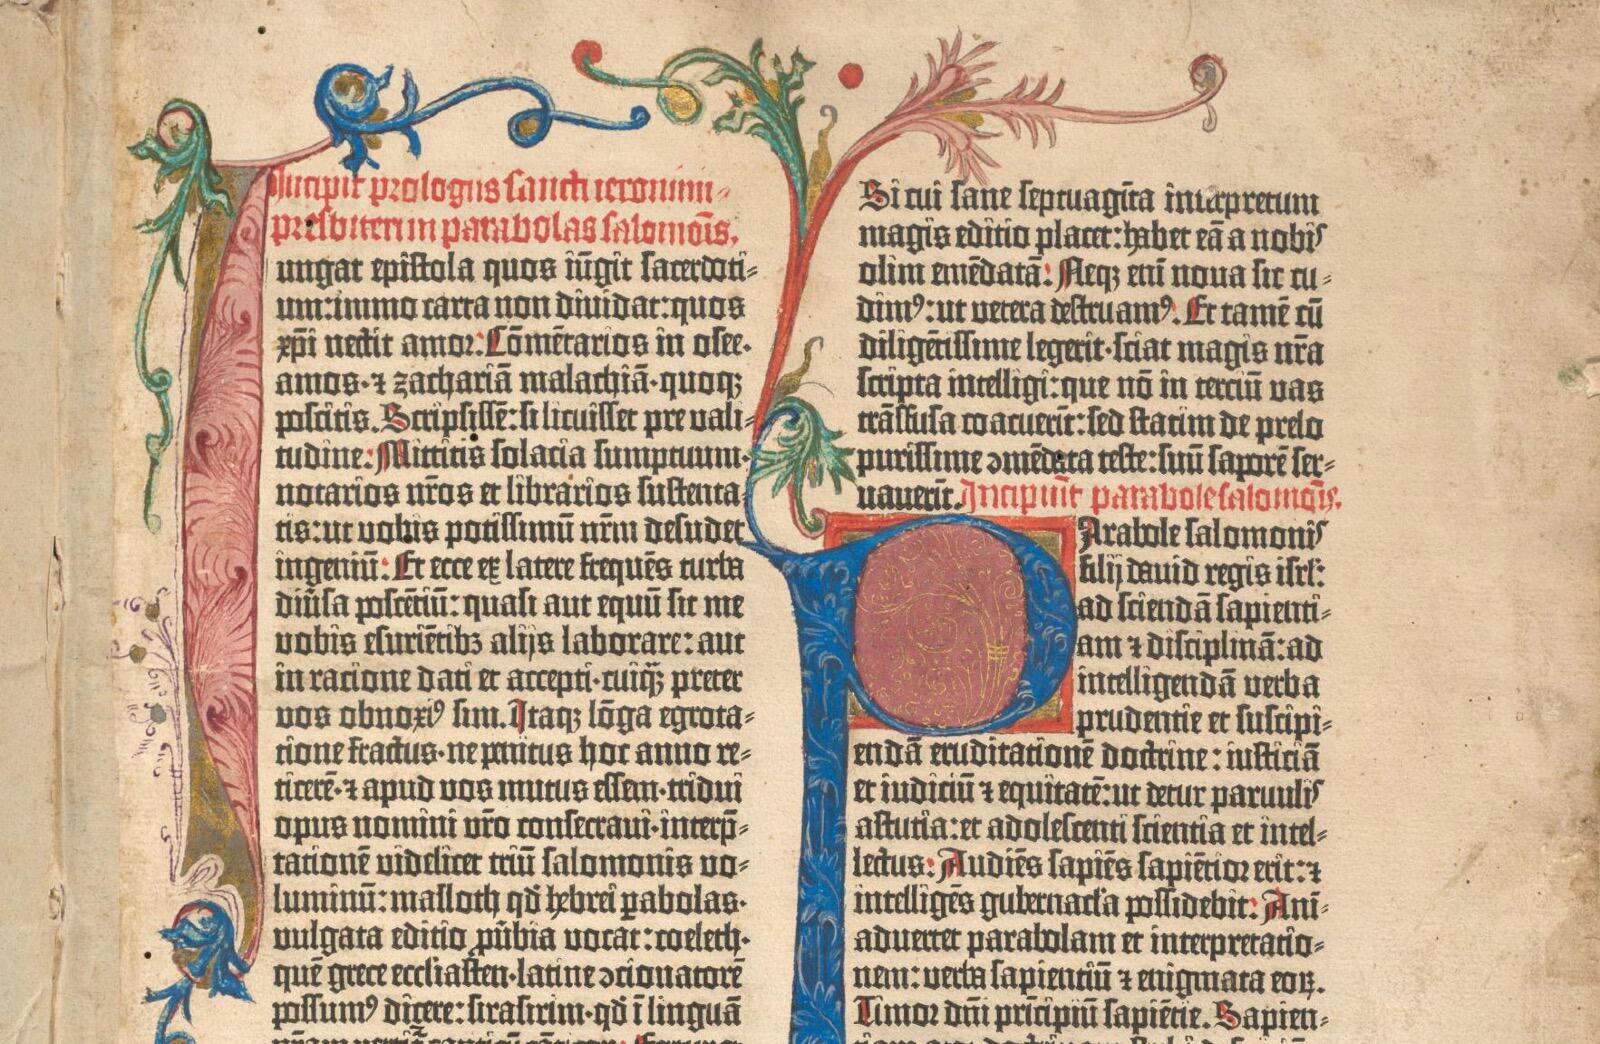 Incipit prologus sancti ieronimi
presbiteri in parabolas salomōis.
ungat epistola quos iūgit sacerdoti-
um:immo carta non diuidat:quos
xp̄i nectit amor:Cōmētarios in osee.
amos·⁊ zachariā malachiā·quoqꝫ
poscitis. Scripsissē:si licuisset pre vali-
tudine:Mittitis solacia sumptuum·
notarios nr̄os et librarios sustenta-
tis:ut vobis potissimū nr̄m desudet
ingeniū:Et ecce ex latere frequēs turba
diūsa poscētiū:quasi aut equū sit me
vobis esuriētibꝫ alijs laborare:aut
in racione dati et accepti·cuiqꝫ̄ preter
vos obnoxiꝰ sim. Itaqꝫ lōga egrota-
tione fractus·ne penitus hoc anno re-
ticerē·⁊ apud vos mutus essem·tridui
opus nomini vr̄o consecraui·interp̄-
tationē videlicet triū salomonis vo-
luminū:masloth qd̄ hebrei ꝑabolas·
vulgata editio ꝓūbia vocat:coeleth·
quē grece eccliasten·latine ↄcionatorē
possumꝰ dicere:sirasirim·qd̄ ī linguā
Si cui sane septuagīta interpretum
magis editio placet:habet eā a nobis
olim emēdatā:Neqꝫ enī noua sic cu-
dimꝰ:ut vetera destruamꝰ. Et tamē cū
diligētissime legerit·sciat magis nr̄a
scripta intelligi:que nō in terciū vas
trāsfusa coacuerīt:sed statim de prelo
purissime ↄmēdata teste:suū saporē ser-
uauerīt. Incipiūt parabole salomōis.
Parabole salomonis
filij dauid regis isrl̄:
ad sciendā sapienti-
am ⁊ disciplinā:ad
intelligendā verba
prudentie et suscipi-
endā eruditationē doctrine:iusticiā
et iudiciū ⁊ equitatē:ut detur paruulis
astutia:et adolescenti scientia et intel-
lectus:Audiēs sapiēs sapiētior erit:⁊
intelligēs gubernacl̄a possidebit:Ani-
aduertet parabolam et interpretatio-
nem:verba sapientiū ⁊ enigmata eoꝝ.
Timor dn̄i prīcipiū sapiētie. Sapien-